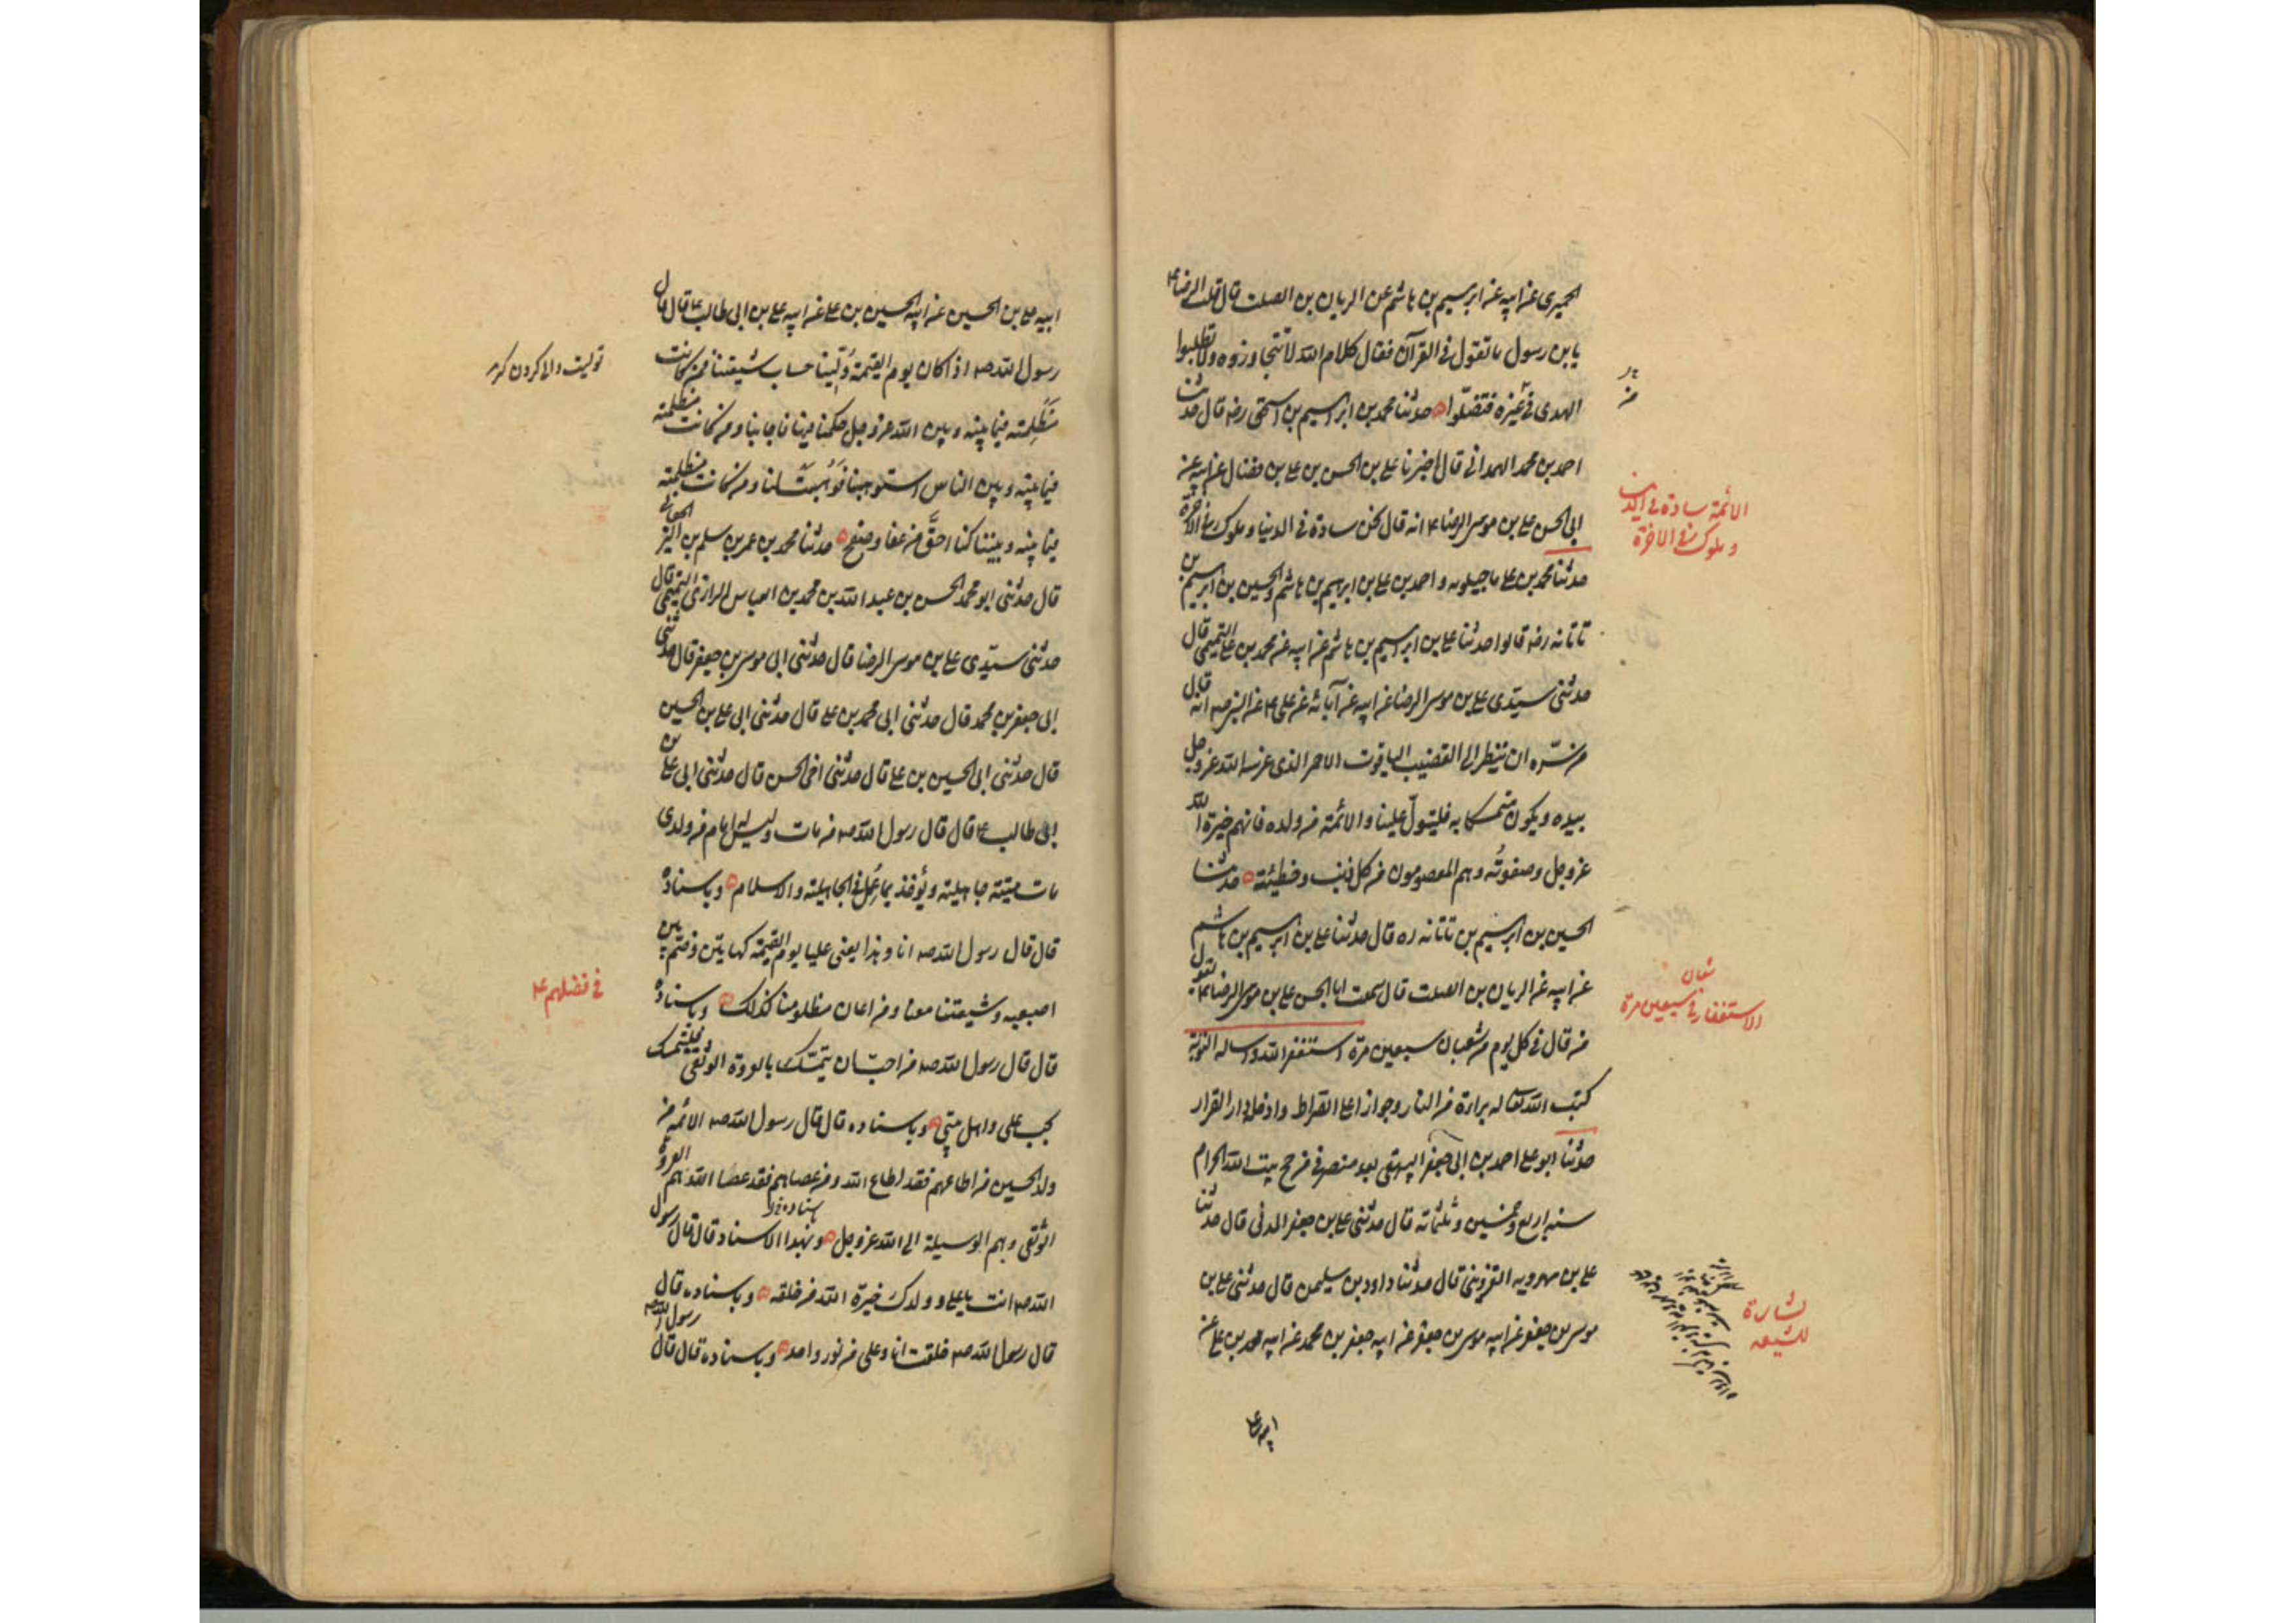 الحميرى عن ابيه عن ابرهيم بن هاشم عن الريان بن الصلت قال قلت للرضا ع
يا بن رسول ما تقول فى القرآن فقال كلام الله لا تتجاوزوه ولا تطلبوا
الهدى فى غيره فتضلّوا حدثنا محمد بن ابرهيم بن اسحق رضه قال حدثنا
احمد بن محمد الهمدانى قال اخبرنا على بن الحسن بن على بن فضال عن ابيه عن
ابى الحسن على بن موسى الرضا ع انه قال نحن سادة فى الدنيا وملوك فى الآخرة
حدثنا محمد بن على ماجيلويه و احمد بن على بن ابرهيم بن هاشم والحسين بن ابرهيم بن
تاتانه رضه قالوا حدثنا على بن ابرهيم بن هاشم عن ابيه عن محمد بن على التميمى قال
حدثنى سيّدى على بن موسى الرضا عن ابيه عن آبائه عن على ع عن النبى صه انه قال
من سرّه ان ينظر الى القضيب الياقوت الاحمر الذى غرسه الله عز وجل
بيده ويكون متمسكا به فليتولّ عليا والائمة من ولده فانهم خيرة الله
عز وجل وصفوته وهم المعصومون من كل ذنب وخطيئة حدثنا
الحسين بن ابرهيم بن تاتانه ره قال حدثنا على بن ابرهيم بن هاشم
عن ابيه عن الريان بن الصلت قال سمعت ابا الحسن على بن موسى الرضا ع يقول
من قال فى كل يوم من شعبان سبعين مرة استغفر الله واساله التوبة
كتب الله تعالى له براءة من النار وجوازا على الصراط وادخله دار القرار
حدثنا ابو على احمد بن ابى جعفر البيهقى بعد منصرفى من حج بيت الله الحرام
سنه اربع وخمسين وثلثمائه قال حدثنى على بن جعفر المدنى قال حدثنا
على بن مهرويه القزوينى قال حدثنا داود بن سليمن قال حدثنى على بن
موسى بن جعفر عن ابيه موسى بن جعفر عن ابيه جعفر بن محمد عن ابيه محمد بن على عن
ابيه على
الائمة سادة فى الدنيا
وملوك فى الآخرة
شعبان
الاستغفار فى سبعين مرة
بشارة
للشيعه
ابيه على بن الحسين عن ابيه الحسين بن على عن ابيه على بن ابى طالب ع قال قال
رسول الله صه اذا كان يوم القيمة وُلّينا حساب شيعتنا فمن كانت
مَظلِمته فيما بينه وبين الله عز وجل حكمنا فيها فاجابنا ومن كانت مظلمته
فيما بينه وبين الناس استوهبناها فوُهبت لنا ومن كانت مظلمته
فيما بينه وبيننا كنا احقَّ من عفا وصفح حدثنا محمد بن عمر بن سلم بن البراء الجعابى
قال حدثنى ابو محمد الحسن بن عبد الله بن محمد بن العباس الرازى التميمى قال
حدثنى سيّدى على بن موسى الرضا قال حدثنى ابى موسى بن جعفر قال حدثنى
ابى جعفر بن محمد قال حدثنى ابى محمد بن على قال حدثنى ابى على بن الحسين
قال حدثنى ابى الحسين بن على قال حدثنى اخى الحسن قال حدثنى ابى على بن
ابى طالب ع قال قال رسول الله صه من مات وليس له امام من ولدى
مات ميتة جاهلية ويُؤخذ بما عَمِل فى الجاهلية والاسلام وباسناده
قال قال رسول الله صه انا وهذا يعنى عليا يوم القيمة كهاتين وضمّ بين
اصبعيه وشيعتنا معنا ومن اعان مظلومنا كذلك وباسناده
قال قال رسول الله صه من احبّ ان يتمسّك بالعروة الوثقى فليتمسك
بحب على واهل بيتى وباسناده قال قال رسول الله صه الائمة من
ولد الحسين من اطاعهم فقد اطاع الله ومن عصاهم فقد عصا الله هم العروة
الوثقى وهم الوسيلة الى الله عز وجل وبهذا الاسناد قال قال رسول
الله صه انت يا على وولدك خيرة الله من خلقه وباسناده قال
قال رسول الله صه خلقت انا وعلى من نور واحد وباسناده قال قال رسول الله صه
توليت والى كردن
فى فضلهم ع